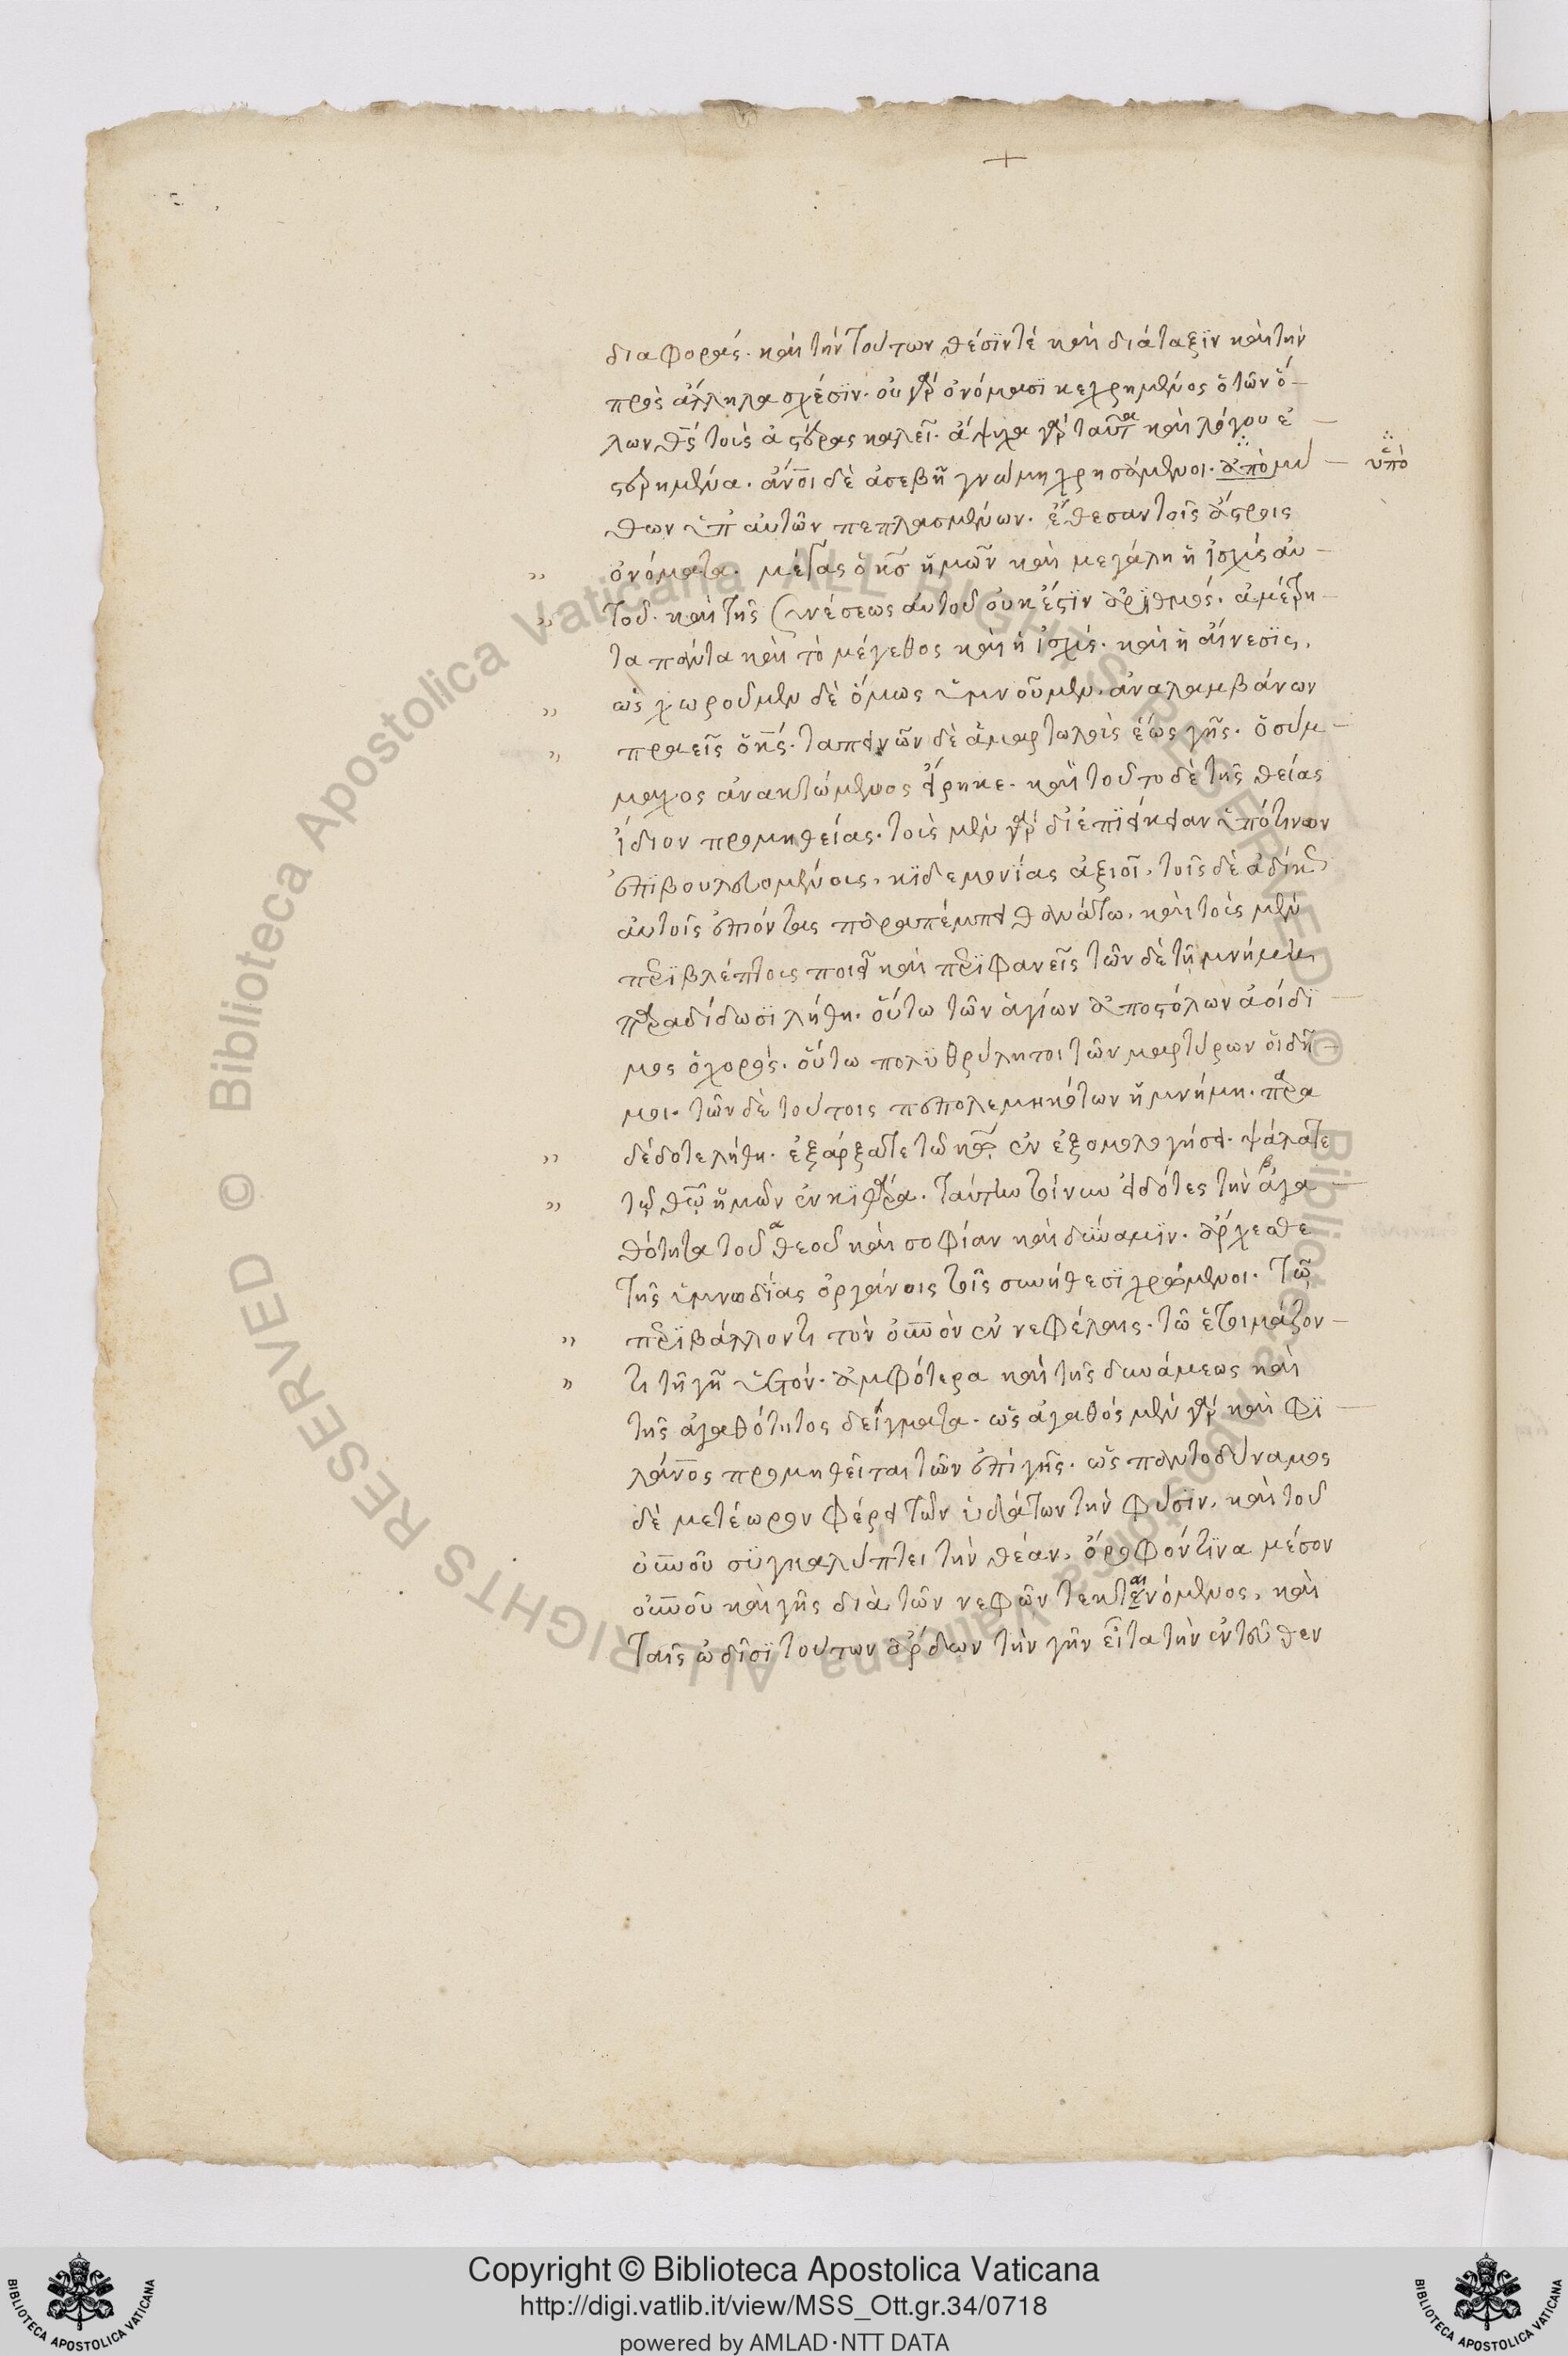 +
διαφοράς. καὶ τὴν τούτων θέσϊν τὲ καὶ διάταξϊν καὶ τὴν
πρὸς ἄλληλα σχέσϊν. οὐ γὰρ ὀνόμασϊ κεχρημένος ὁ τῶν ὅ–
λων θς̄ τοὺς ἀστέρας καλεῖ. ἄψυχα γὰρ ταῦτα καὶ λόγου ἐ–
στερημένα. ἄνο̄ι δὲ ἀσεβῆ γνώμη χρησάμενοι. ἀπὸ μύ–
ὑπὸ
θων ὑπ' αὐτῶν πεπλασμένων. ἔθεσαν τοῖς ἄστροις
ὀνόματα. μέγας ὁ κς̄ ἡμῶν καὶ μεγάλη ἡ ἰσχὺς αὐ–
τοῦ. καὶ τῆς συνέσεως αὐτοῦ οὐκ ἔστϊν ἀρϊθμός. ἀμέτρη–
τα πάντα καὶ τὸ μέγεθος καὶ ἡ ἰσχύς. καὶ ἡ αἴνεσϊς.
ὡς χωροῦμεν δὲ ὅμως ὑμνοῦμεν. ἀναλαμβάνων
πραεῖς ὁ κς̄. ταπεινῶν δὲ ἁμαρτωλοὺς ἕως γῆς. ὁ σύμ–
μαχος ἀνακτώμενος εἴρηκε. καὶ τοῦτο δὲ τῆς θείας
ἴδιον προμηθείας. τοὺς μὲν γὰρ δι' ἐπϊείκειαν ὑπό τινων
ἐπϊβουλευομένους, κϊδεμονίας ἀξιοῖ. τοῖς δὲ ἀδίκως
αὐτοῖς ἐπιόντας παραπέμπει θανάτω. καὶ τοὺς μὲν
περϊβλέπτους ποιεῖ καὶ περϊφανεῖς τῶν δὲ τὴν μνήμην
παραδίδωσϊ λήθη. οὕτω τῶν ἁγίων ἀποστόλων ἀοίδι–
μος ὁ χορός. οὕτω πολϋθρύλητοι τῶν μαρτύρων οἱ δῆ–
μοι. τῶν δὲ τούτοις πεπολεμηκότων ἡ μνήμη. παρα
δέδοται λήθη. ἐξάρξατε τῶ κω̄ ἐν ἐξομολογήσει. ψάλατε
τῷ θω̄ ἡμῶν ἐν κϊθάρα. ταύτην τοίνυν εἰδότες τὴν β ἀγα–
θότητα τοῦ α θεοῦ καὶ σοφίαν καὶ δύναμϊν. ἄρχεσθε
τῆς ὑμνωδίας ὀργάνοις τοῖς συνήθεσϊ χρώμενοι. τῷ
περϊβάλλοντι τὸν οὐν̄ὸν ἐν νεφέλαις. τῶ ἑτοιμάζον–
τι τῆ γῆ ὑετόν. ἀμφότερα καὶ τῆς δυνάμεως καὶ
τῆς ἀγαθότητος δείγματα. ὡς ἀγαθὸς μὲν γὰρ καὶ φϊ–
λάνο̄ς προμηθεῖται τῶν ἐπὶ γῆς. ὡς παντοδύναμος
δὲ μετέωρον φέρει τῶν ὑδάτων τὴν φύσϊν. καὶ τοῦ
οὐν̄οῦ συγκαλύπτει τὴν θέαν, ὄροφόν τϊνα μέσον
οὐν̄οῦ καὶ γῆς διὰ τῶν νεφῶν τεκταινόμενος, καὶ
ταῖς ὠδῖσϊ τούτων ἄρδων τὴν γῆν εἶτα τὴν ἐντεῦθεν
Copyright © Biblioteca Apostolica Vaticana
http://digi.vatlib.it/view/MSS_Ott.gr.34/0718
powered by AMLAD·NTT DATA